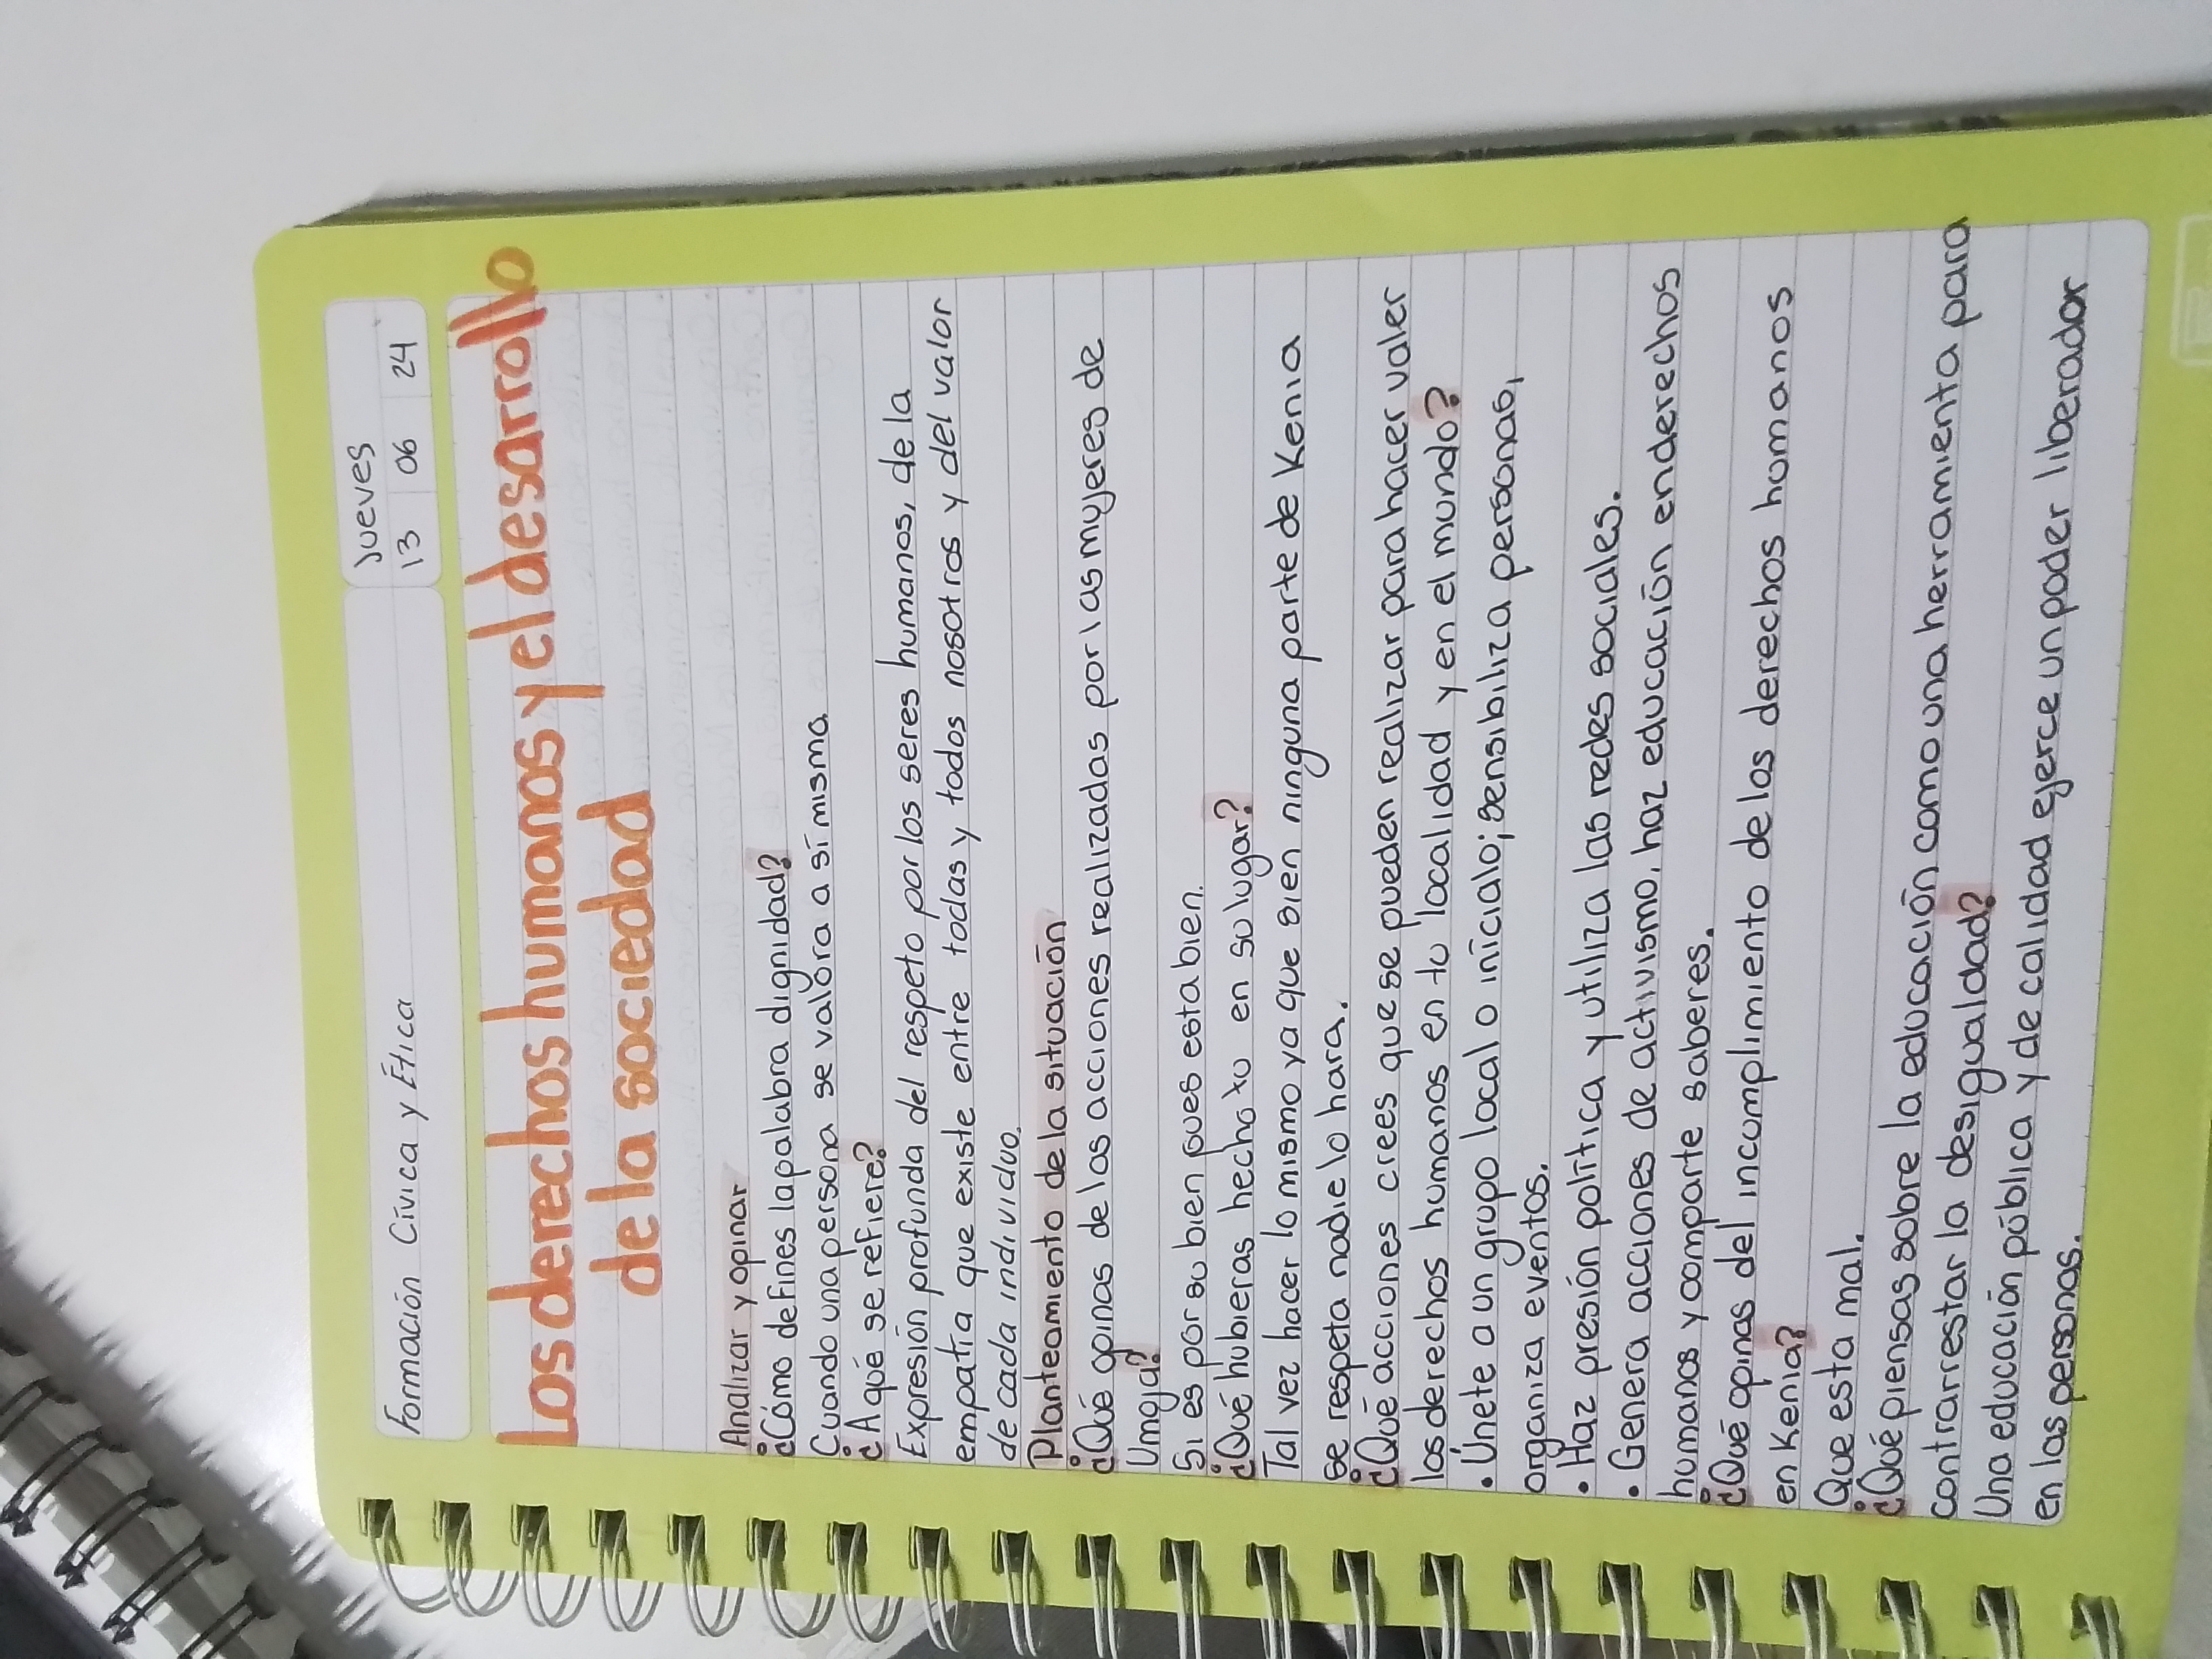 Formación Cívica y Ética
Jueves
13 06 24
Los derechos humanos y el desarrollo
de la sociedad
Analizar y opinar
¿Cómo defines la palabra dignidad?
Cuando una persona se valora a sí misma.
¿A qué se refiere?
Expresión profunda del respeto por los seres humanos, de la
empatía que existe entre todas y todos nosotros y del valor
de cada individuo.
Planteamiento de la situación
¿Qué opinas de las acciones realizadas por las mujeres de
Umoja?
Si es por su bien pues esta bien.
¿Qué hubieras hecho tu en su lugar?
Tal vez hacer lo mismo ya que si en ninguna parte de Kenia
se respeta nadie lo hara.
¿Qué acciones crees que se pueden realizar para hacer valer
los derechos humanos en tu localidad y en el mundo?
• Únete a un grupo local o inícialo; sensibiliza personas,
organiza eventos.
• Haz presión política y utiliza las redes sociales.
• Genera acciones de activismo, haz educación en derechos
humanos y comparte saberes.
¿Qué opinas del incumplimiento de los derechos humanos
en Kenia?
Que esta mal.
¿Qué piensas sobre la educación como una herramienta para
contrarrestar la desigualdad?
Una educación pública y de calidad ejerce un poder liberador
en las personas.